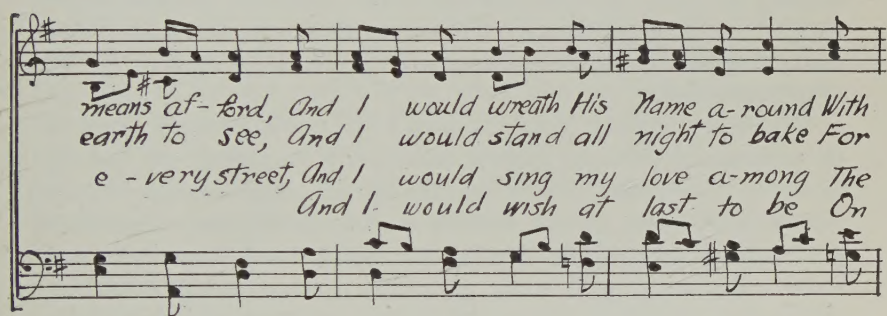 means af-ford, And I would wreath His Name a-round With
earth to see, And I would stand all night to bake For
e-very street, And I would sing my love a-mong The
And I would wish at last to be On